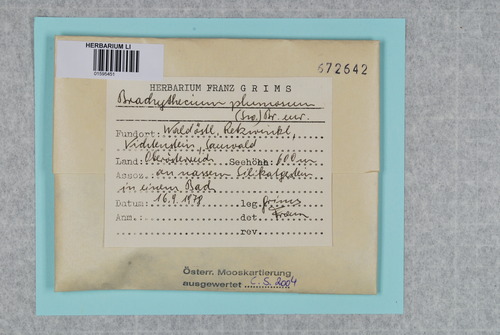 HERBARIUM LI
01595451
672642
HERBARIUM FRANZ GRIMS
Brachythecium plumosum
(Sw.) Br. eur.
Fundort: Waldöstl. Rekwinkl,
Vichtenstein, Sauwald
Land: Oberösterreich Seehöhe: 600 m
Assoz. an nassem Silikatgestein
in einem Bach
Datum: 16.9.1978 leg. Grims
Anm.: det. Franz
rev.
Österr. Mooskartierung
ausgewertet C. S. 2004